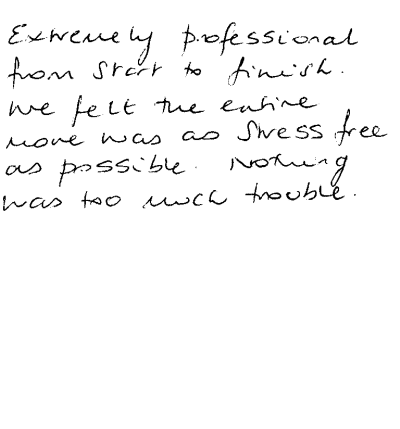 Extremely professional
from start to finish.
We felt the entire
move was as stress free
as possible. Nothing
was too much trouble.